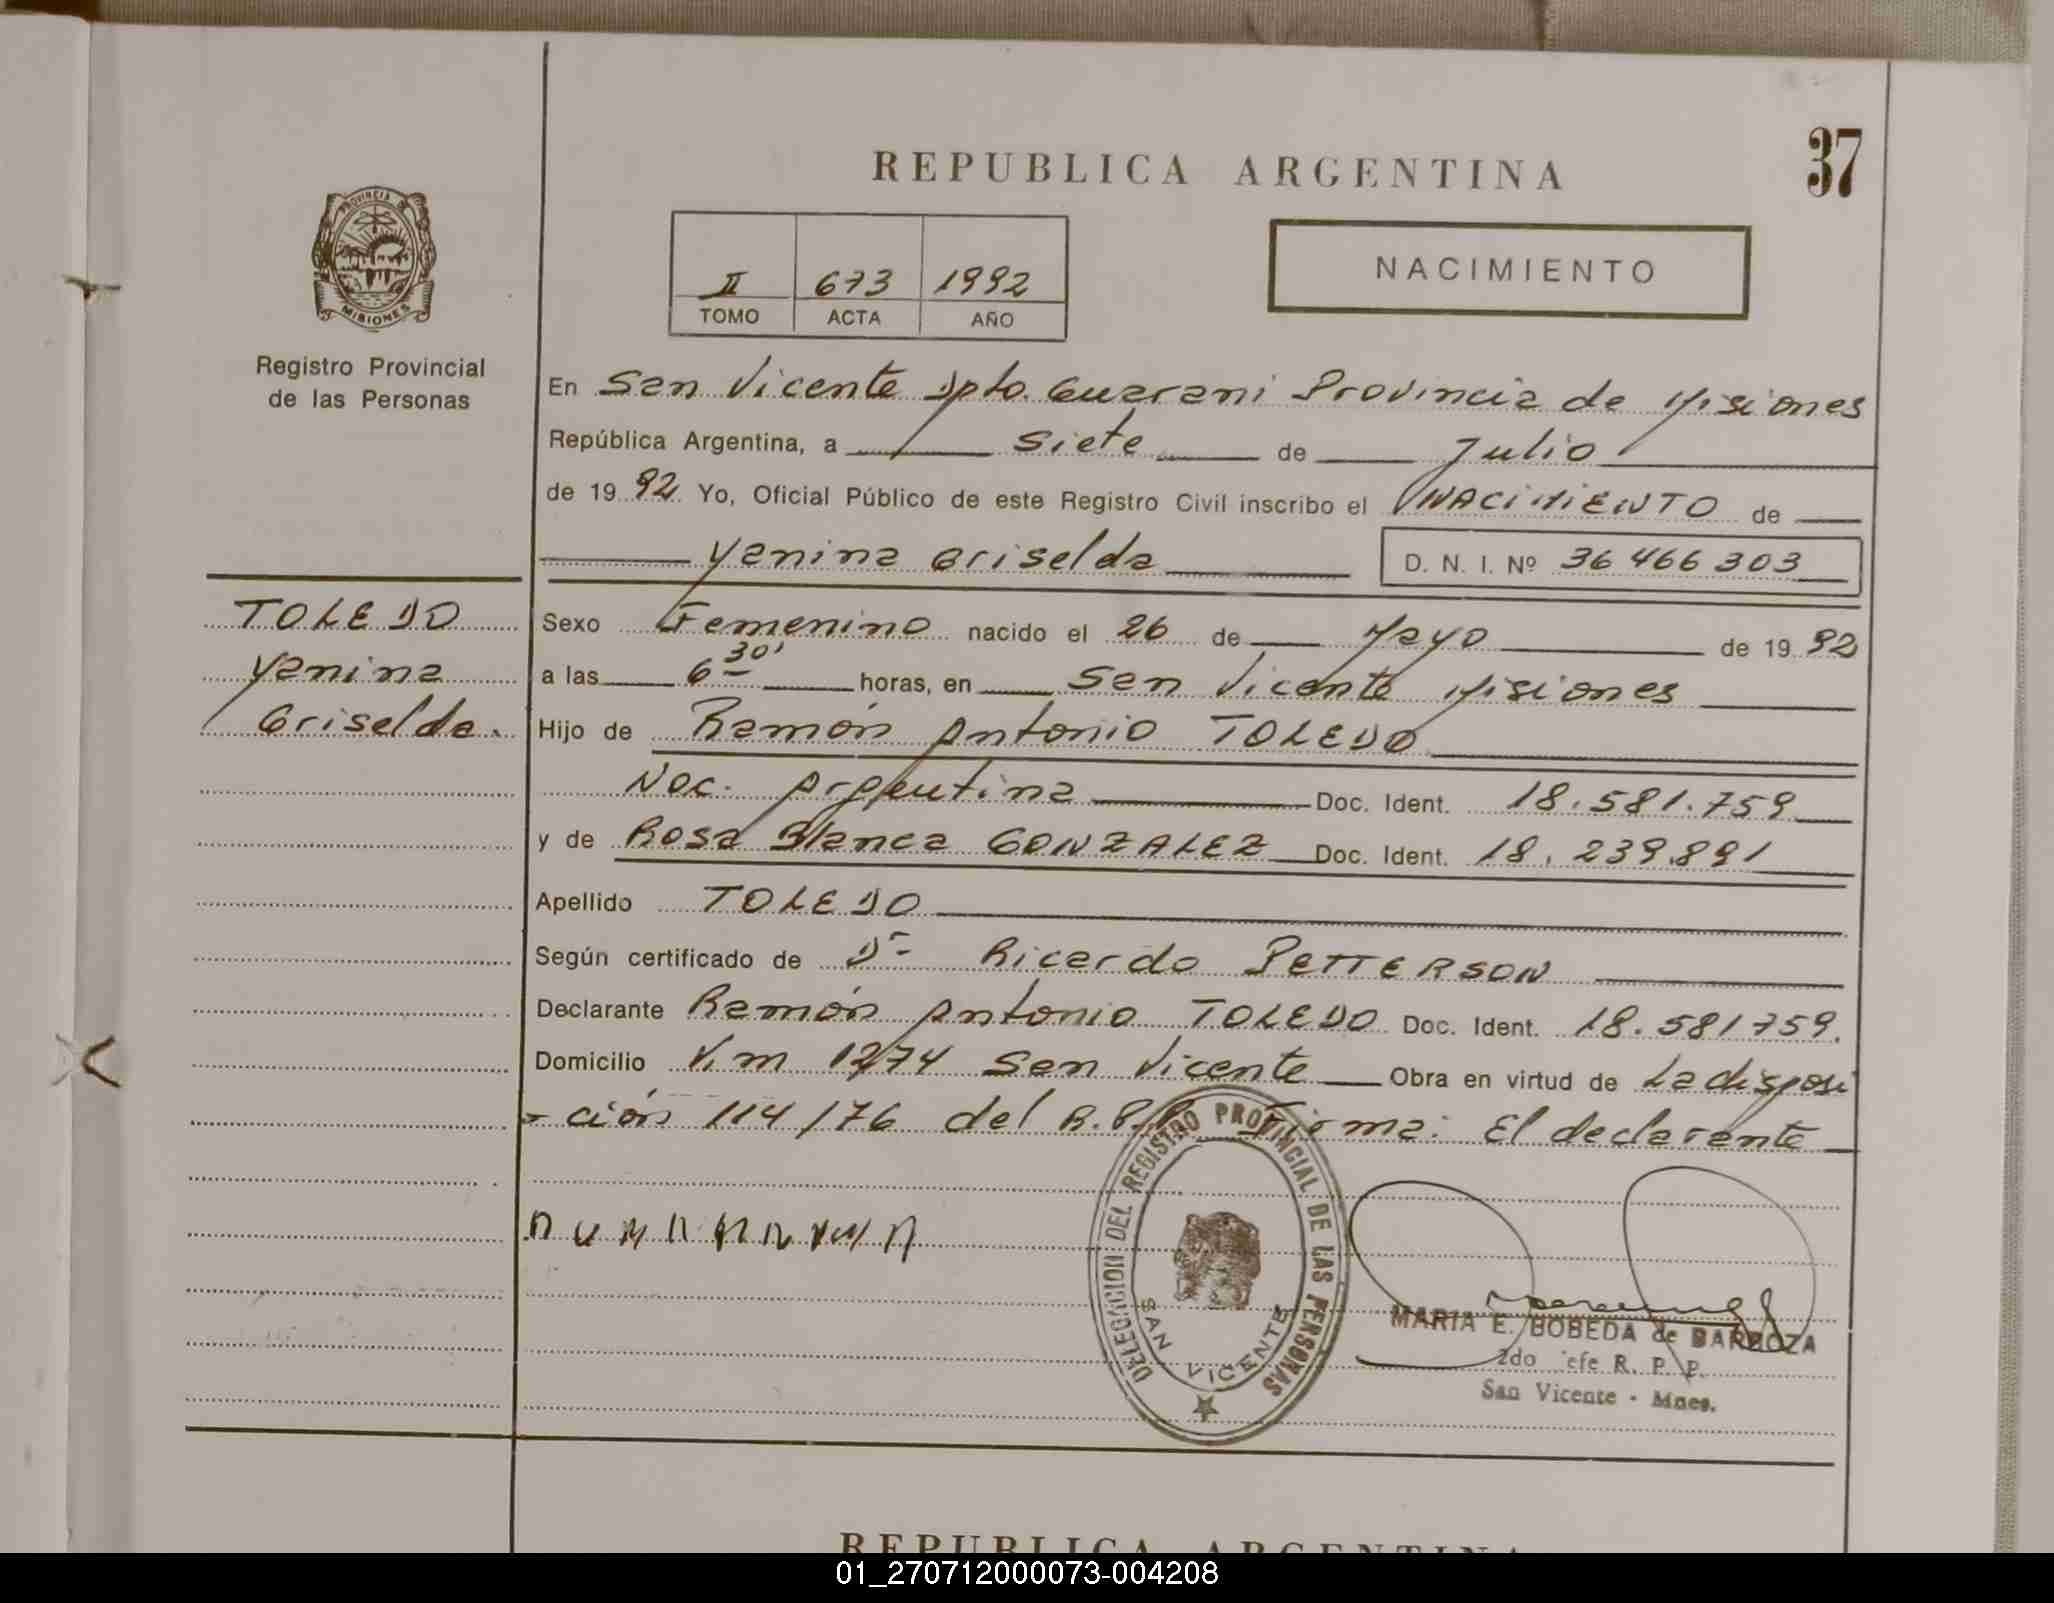 37
REPUBLICA ARGENTINA
PROVINCIA DE
MISIONES
Registro Provincial
de las Personas
II 673 1992
TOMO ACTA AÑO
NACIMIENTO
En San Vicente Dpto. Guarani Provincia de Misiones
República Argentina, a siete de Julio
de 19 92 Yo, Oficial Público de este Registro Civil inscribo el NACIMIENTO de
Yanina Griselda D. N. I. Nº 36 466 303
TOLEDO
Yanina
Griselda.
Sexo Femenino nacido el 26 de Mayo de 19 92
a las 6 30' horas, en San Vicente Misiones
Hijo de Ramón Antonio TOLEDO
Nac. Argentina Doc. Ident. 18.581.759
y de Rosa Blanca GONZALEZ Doc. Ident. 18.239.891
Apellido TOLEDO
Según certificado de Dr Ricardo PETTERSON
Declarante Ramón Antonio TOLEDO Doc. Ident. 18.581759.
Domicilio Km 1274 San Vicente Obra en virtud de La disposi
ción 114/76 del R.P.P. Firma: El declarante
DELEGACION DEL REGISTRO PROVINCIAL DE LAS PERSONAS
SAN VICENTE
MARIA E. BOBEDA de BARBOZA
2do Jefe R. P. P.
San Vicente - Mnes.
REPUBLICA ARGENTINA
01_270712000073-004208